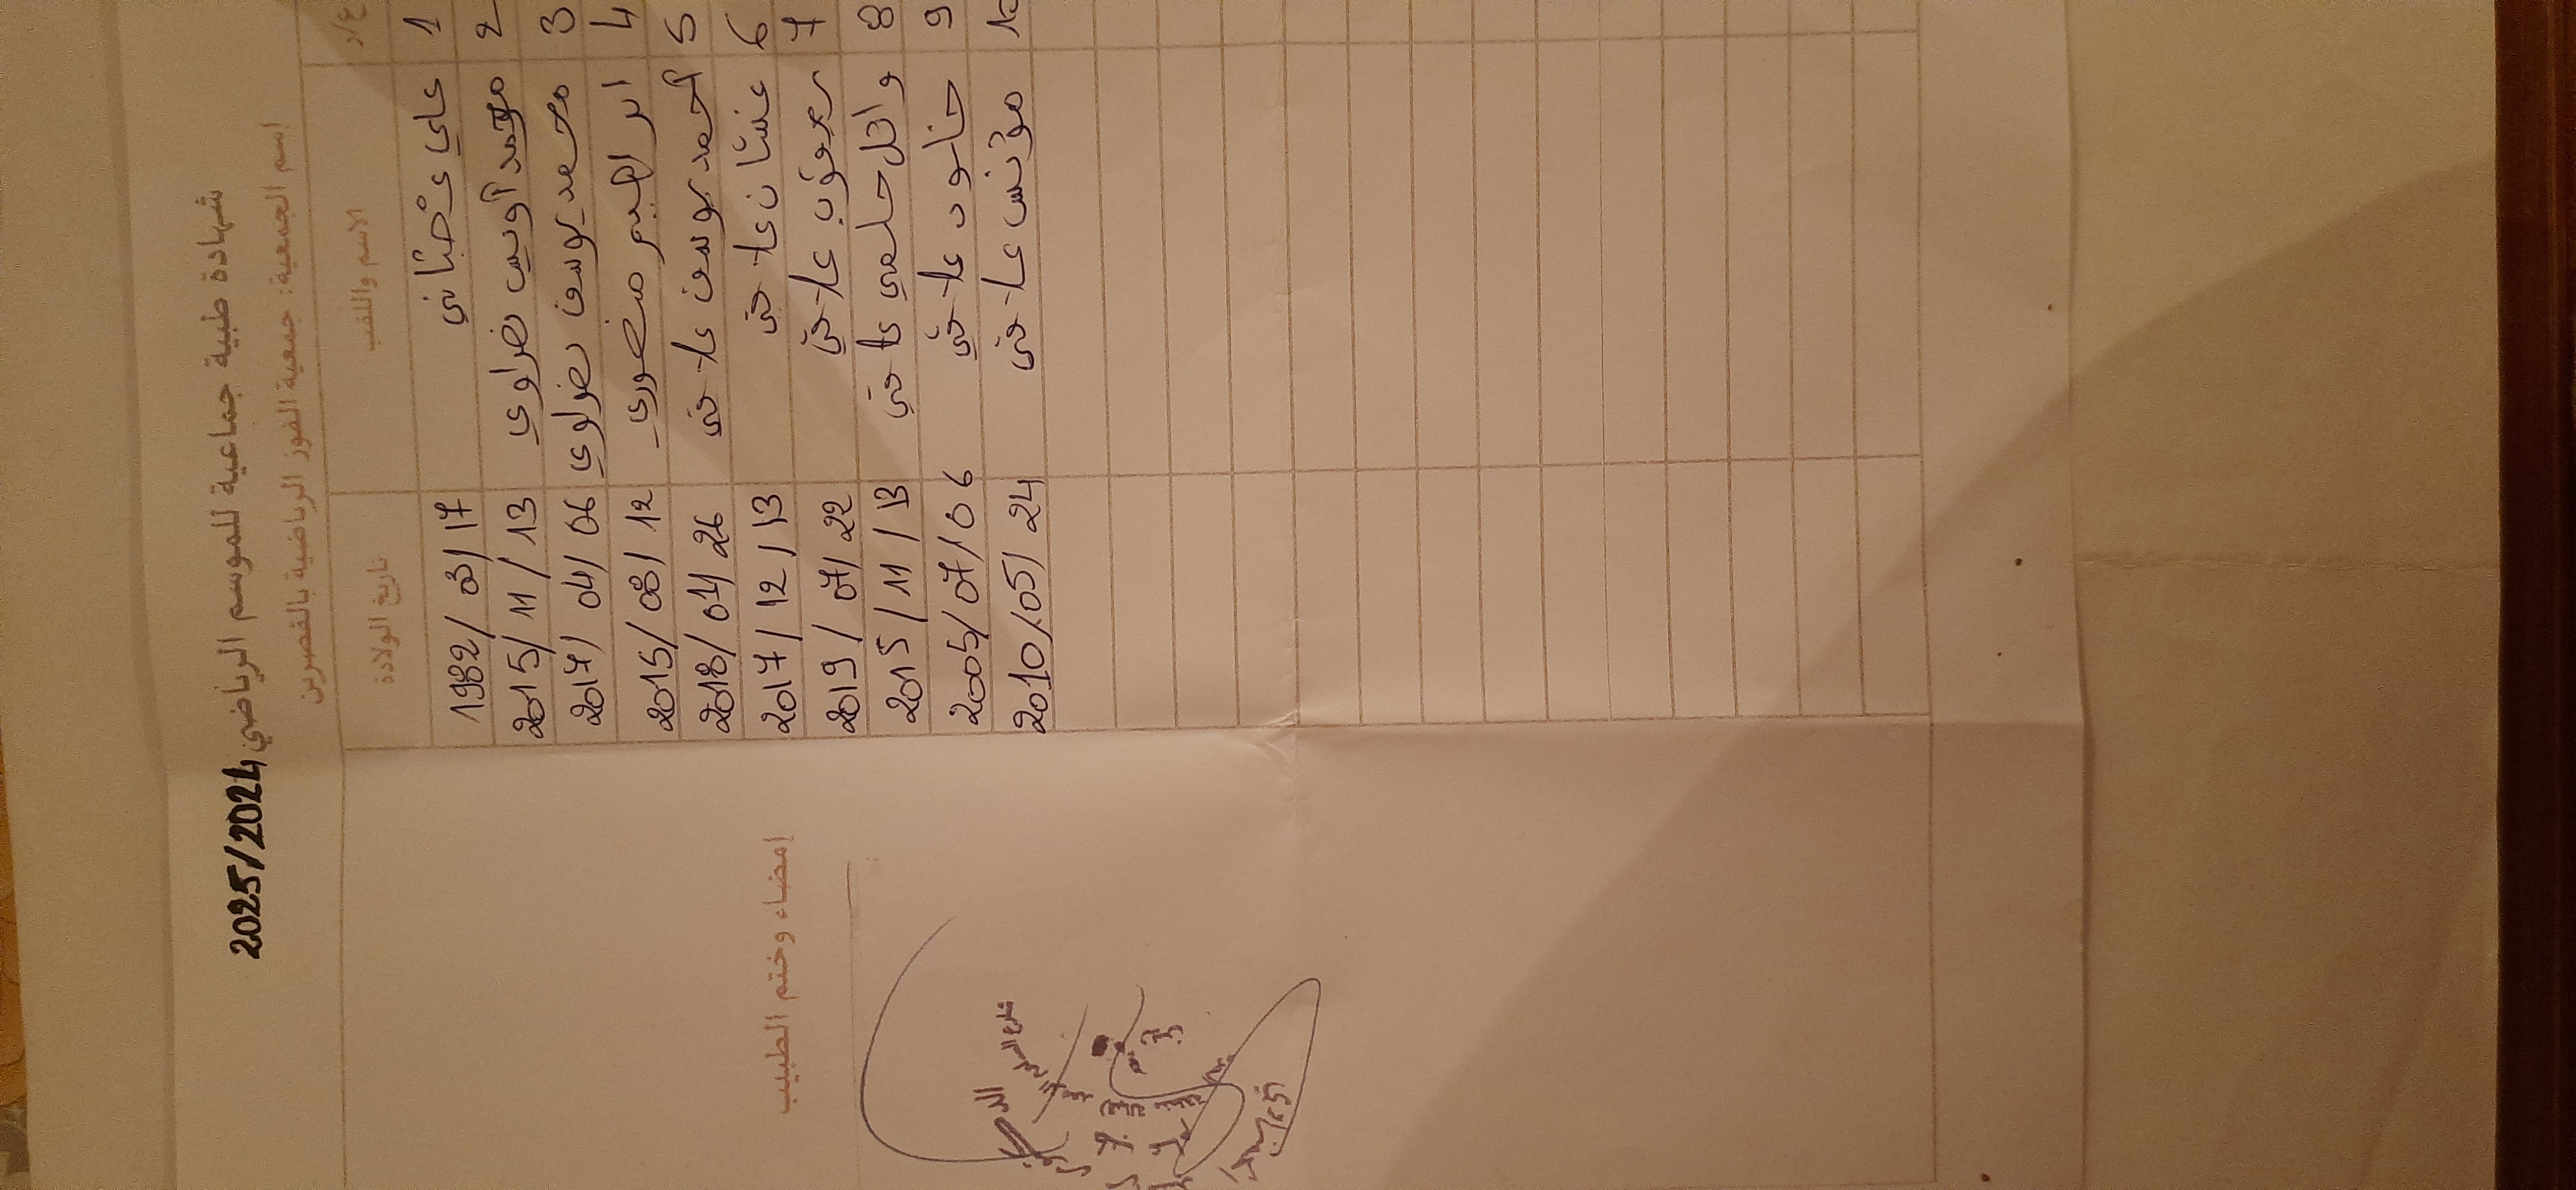 شهادة طبية جماعية للموسم الرياضي 2025/2024
اسم الجمعية: جمعية الفوز الرياضية بالقصرين
ع/د الاسم واللقب تاريخ الولادة
1 علي عصباني 1982/03/17
2 محمد أويس نصراوي 2015/11/13
3 محمد يوسف نصراوي 2017/04/06
4 ابراهيم منصوري 2015/08/12
5 أحمد يوسف علاقي 2018/04/26
6 غسان علاقي 2017/12/13
7 يعقوب علاقي 2019/07/22
8 وائل حلمي علاقي 2015/11/13
9 خلود علاقي 2005/07/06
10 مؤنس علاقي 2010/05/24
إمضاء وختم الطبيب